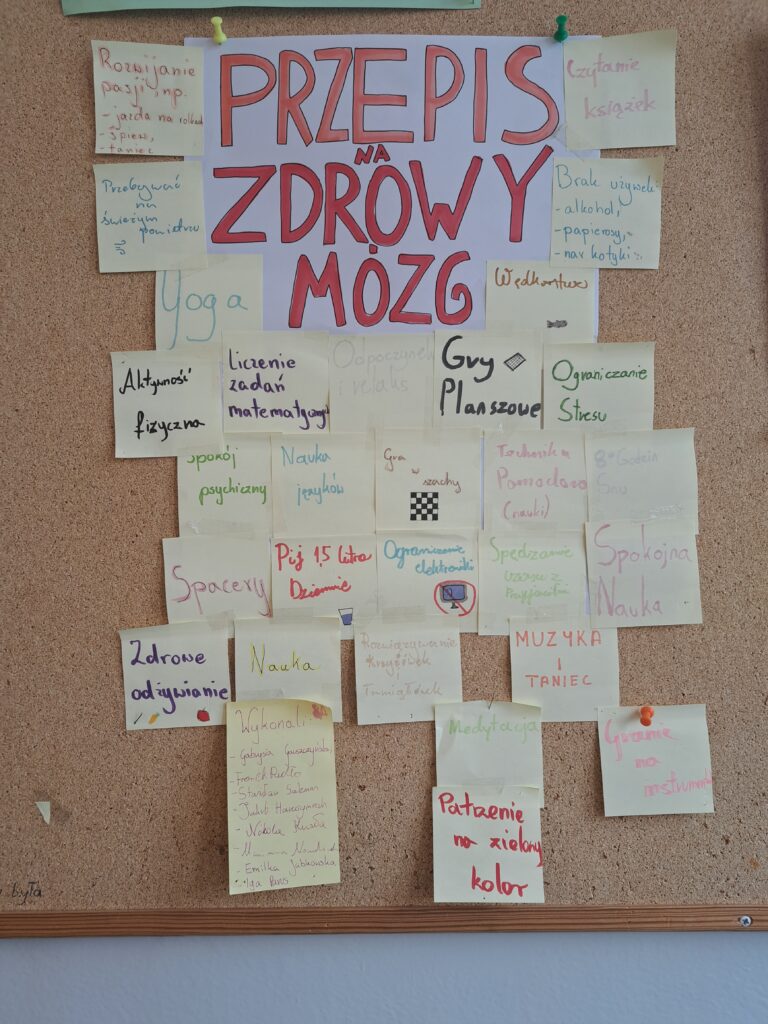 PRZEPIS
NA
ZDROWY
MÓZG
Rozwijanie
pasji, np.
- jazda na
- śpiew,
- taniec
Czytanie
książek
Przebywać
na
świeżym
powietrzu
Brak używek
- alkohol,
- papierosy,
- narkotyki
Yoga
Wędkarstwo
Aktywność
fizyczna
Liczenie
zadań
matematycznych
Odpoczynek
i relaks
Gry
Planszowe
Ograniczanie
Stresu
Spokój
psychiczny
Nauka
języków
Gra
w
szachy
Technika
Pomodoro
(nauki)
8 Godzin
Snu
Spacery
Pij 1,5 litra
Dziennie
Ograniczenie
elektroniki
Spędzanie
czasu z
Przyjaciółmi
Spokojna
Nauka
Zdrowe
odżywianie
Nauka
Rozwiązywanie
Krzyżówek
i
Łamigłówek
MUZYKA
I
TANIEC
Wykonali:
- Gabrysia
- Stanisław
- Jakub
- Nikola
- Emilka Jabłkowska
- Iga
Medytacja
Patrzenie
na zielony
kolor
Granie
na
instrumentach
była